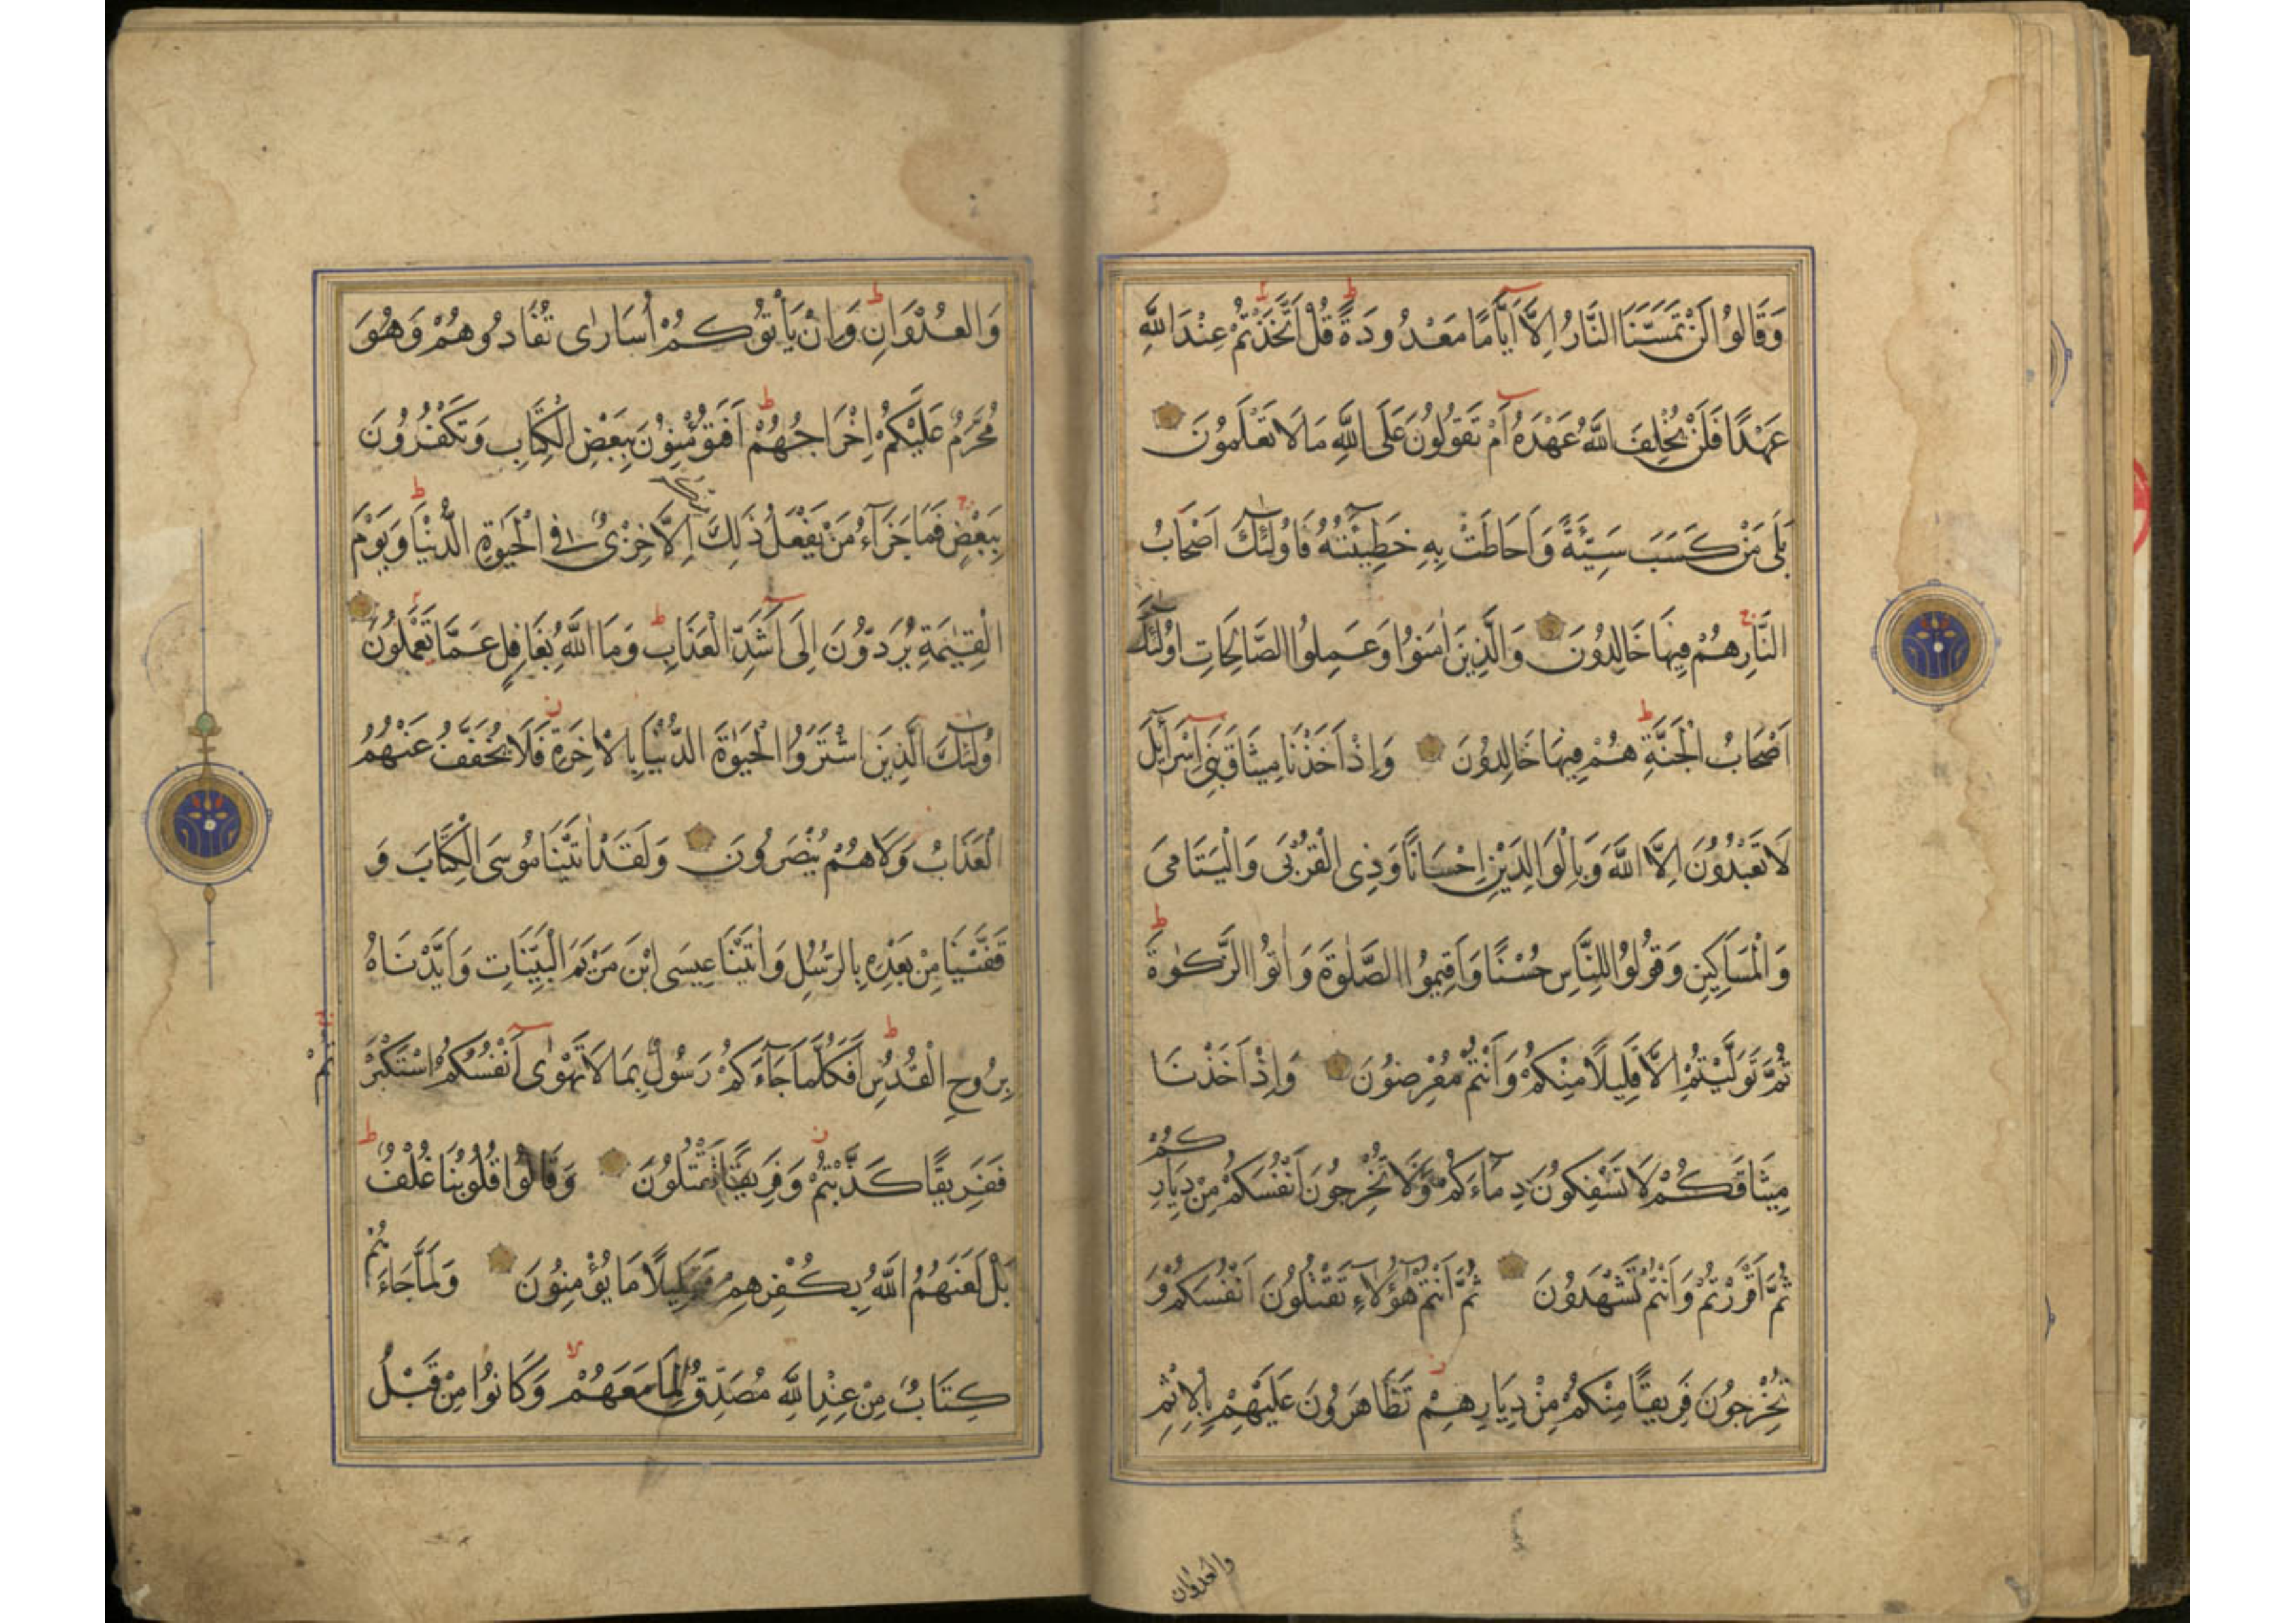 وَقَالُوا لَنْ تَمَسَّنَا النَّارُ إِلَّا أَيَّامًا مَعْدُودَةً قُلْ أَتَّخَذْتُمْ عِنْدَ اللَّهِ
عَهْدًا فَلَنْ يُخْلِفَ اللَّهُ عَهْدَهُ أَمْ تَقُولُونَ عَلَى اللَّهِ مَا لَا تَعْلَمُونَ
بَلَى مَنْ كَسَبَ سَيِّئَةً وَأَحَاطَتْ بِهِ خَطِيئَتُهُ فَأُولَئِكَ أَصْحَابُ
النَّارِ هُمْ فِيهَا خَالِدُونَ وَالَّذِينَ آمَنُوا وَعَمِلُوا الصَّالِحَاتِ أُولَئِكَ
أَصْحَابُ الْجَنَّةِ هُمْ فِيهَا خَالِدُونَ وَإِذْ أَخَذْنَا مِيثَاقَ بَنِي إِسْرَائِلَ
لَا تَعْبُدُونَ إِلَّا اللَّهَ وَبِالْوَالِدَيْنِ إِحْسَانًا وَذِي الْقُرْبَى وَالْيَتَامَى
وَالْمَسَاكِينِ وَقُولُوا لِلنَّاسِ حُسْنًا وَأَقِيمُوا الصَّلٰوةَ وَآتُوا الزَّكٰوةَ
ثُمَّ تَوَلَّيْتُمْ إِلَّا قَلِيلًا مِنْكُمْ وَأَنْتُمْ مُعْرِضُونَ وَإِذْ أَخَذْنَا
مِيثَاقَكُمْ لَا تَسْفِكُونَ دِمَاءَكُمْ وَلَا تُخْرِجُونَ أَنْفُسَكُمْ مِنْ دِيَارِكُمْ
ثُمَّ أَقْرَرْتُمْ وَأَنْتُمْ تَشْهَدُونَ ثُمَّ أَنْتُمْ هَؤُلَاءِ تَقْتُلُونَ أَنْفُسَكُمْ وَ
تُخْرِجُونَ فَرِيقًا مِنْكُمْ مِنْ دِيَارِهِمْ تَظَاهَرُونَ عَلَيْهِمْ بِالْإِثْمِ
والعدوان
وَالْعُدْوَانِ وَإِنْ يَأْتُوكُمْ أُسَارَى تُفَادُوهُمْ وَهُوَ
مُحَرَّمٌ عَلَيْكُمْ إِخْرَاجُهُمْ أَفَتُؤْمِنُونَ بِبَعْضِ الْكِتَابِ وَتَكْفُرُونَ
بِبَعْضٍ فَمَا جَزَاءُ مَنْ يَفْعَلُ ذَلِكَ مِنْكُمْ إِلَّا خِزْيٌ فِي الْحَيٰوةِ الدُّنْيَا وَيَوْمَ
الْقِيٰمَةِ يُرَدُّونَ إِلَى أَشَدِّ الْعَذَابِ وَمَا اللَّهُ بِغَافِلٍ عَمَّا تَعْمَلُونَ
أُولَئِكَ الَّذِينَ اشْتَرَوُا الْحَيٰوةَ الدُّنْيَا بِالْآخِرَةِ فَلَا يُخَفَّفُ عَنْهُمُ
الْعَذَابُ وَلَا هُمْ يُنْصَرُونَ وَلَقَدْ آتَيْنَا مُوسَى الْكِتَابَ وَ
قَفَّيْنَا مِنْ بَعْدِهِ بِالرُّسُلِ وَآتَيْنَا عِيسَى ابْنَ مَرْيَمَ الْبَيِّنَاتِ وَأَيَّدْنَاهُ
بِرُوحِ الْقُدُسِ أَفَكُلَّمَا جَاءَكُمْ رَسُولٌ بِمَا لَا تَهْوَى أَنْفُسُكُمُ اسْتَكْبَرْتُمْ
فَفَرِيقًا كَذَّبْتُمْ وَفَرِيقًا تَقْتُلُونَ وَقَالُوا قُلُوبُنَا غُلْفٌ
بَلْ لَعَنَهُمُ اللَّهُ بِكُفْرِهِمْ فَقَلِيلًا مَا يُؤْمِنُونَ وَلَمَّا جَاءَهُمْ
كِتَابٌ مِنْ عِنْدِ اللَّهِ مُصَدِّقٌ لِمَا مَعَهُمْ وَكَانُوا مِنْ قَبْلُ